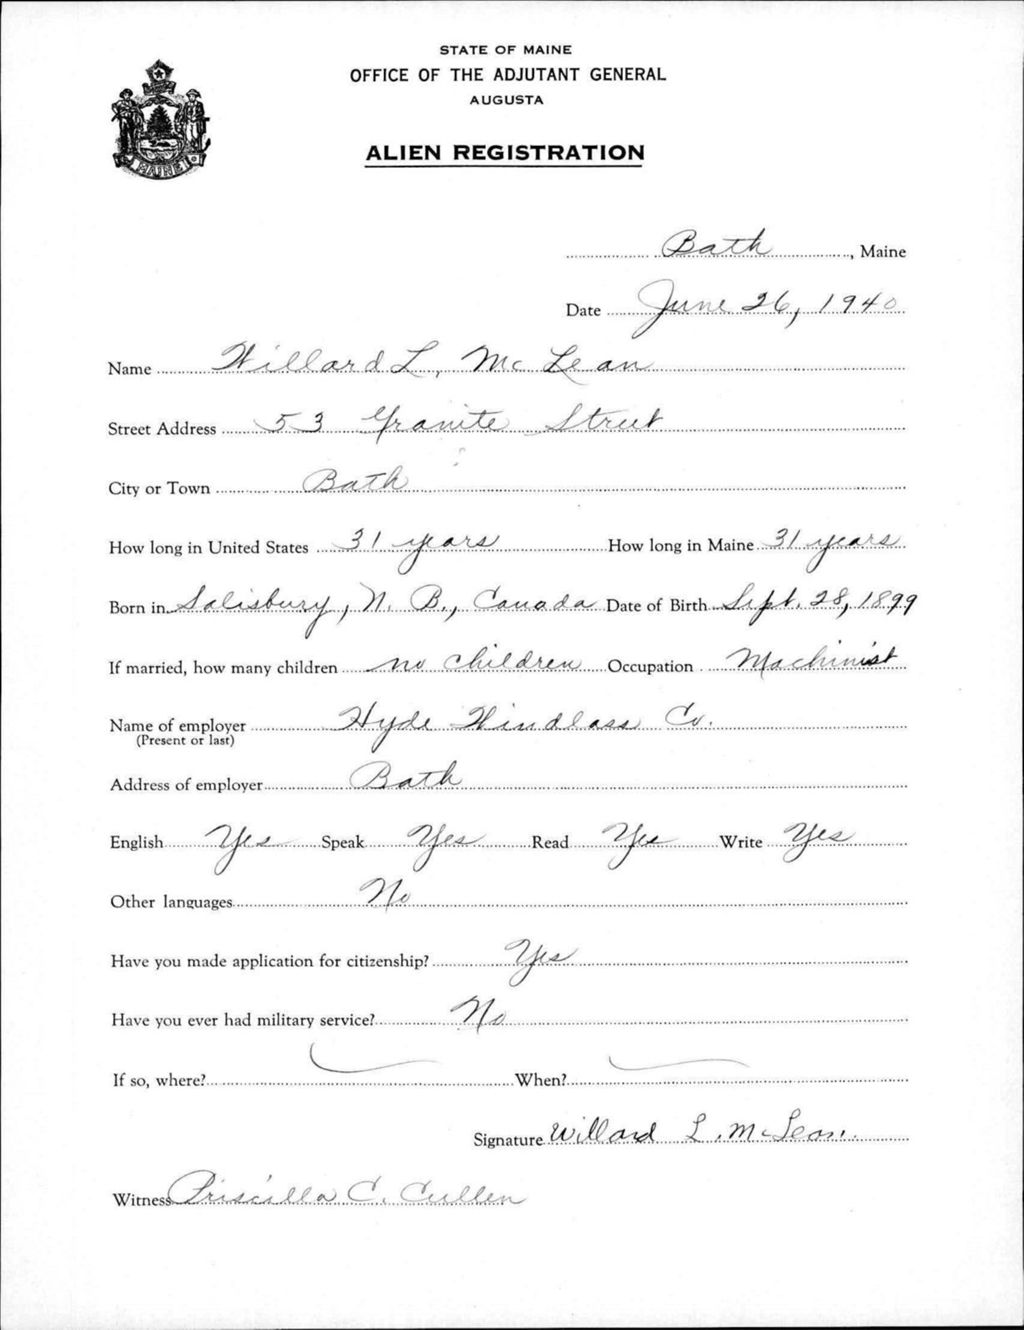 STATE OF MAINE
OFFICE OF THE ADJUTANT GENERAL
AUGUSTA
ALIEN REGISTRATION
MAINE
Bath, Maine
Date June 26, 1940
Name Willard L. McLean
Street Address 53 Granite Street
City or Town Bath
How long in United States 31 years How long in Maine 31 years
Born in Salisbury, N. B., Canada Date of Birth Sept. 28, 1899
If married, how many children no children Occupation Machinist
Name of employer Hyde Windlass Co.
(Present or last)
Address of employer Bath
English Yes Speak Yes Read Yes Write Yes
Other languages No
Have you made application for citizenship? Yes
Have you ever had military service? No
If so, where? When?
Signature Willard L. McLean.
Witness Priscilla C. Cullen